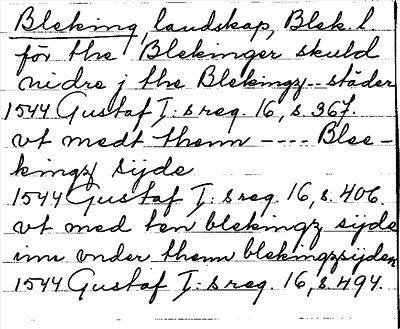 Bleking, landskap, Blek. l.
för the Blekinger skuld
nidre j the Blekingz--städer
1544 Gustaf I:s reg. 16, s. 367.
vt medt thenn ---- Blee-
kingz sijde
1544 Gustaf I:s reg. 16, s. 406.
vt med ten blekingz sijde
inn vnder thenn blekingzsijden
1544 Gustaf I:s reg. 16, s. 494.